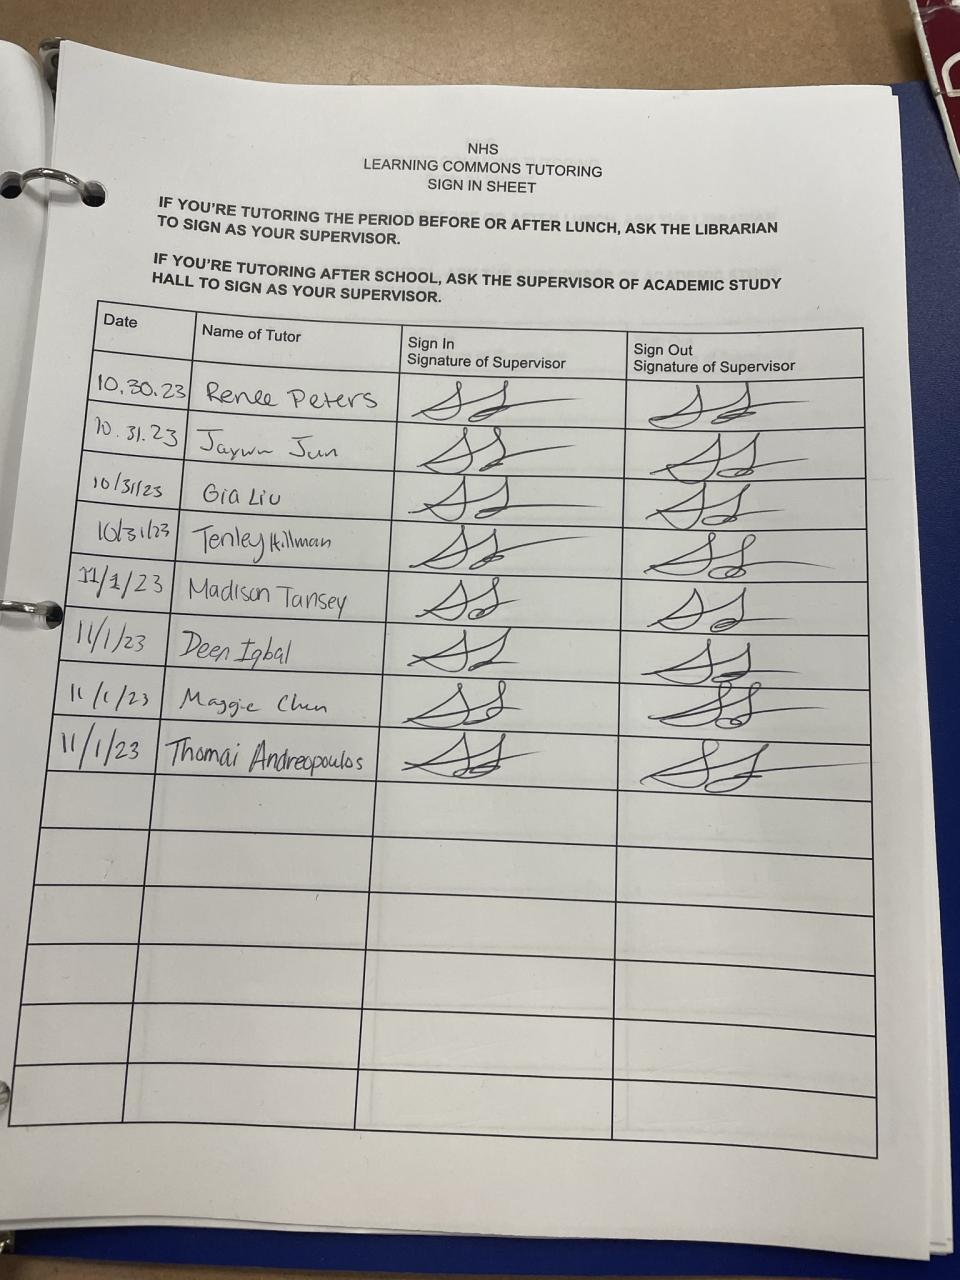 NHS
LEARNING COMMONS TUTORING
SIGN IN SHEET
IF YOU'RE TUTORING THE PERIOD BEFORE OR AFTER LUNCH, ASK THE LIBRARIAN
TO SIGN AS YOUR SUPERVISOR.
IF YOU'RE TUTORING AFTER SCHOOL, ASK THE SUPERVISOR OF ACADEMIC STUDY
HALL TO SIGN AS YOUR SUPERVISOR.
Date Name of Tutor Sign In Signature of Supervisor Sign Out Signature of Supervisor
10.30.23 Renee Peters
10.31.23 Jun
10/31/23 Gia Liu
10/31/23 Tenley Hillman
11/1/23 Madison Tansey
11/1/23 Deen Iqbal
11/1/23 Maggie Chen
11/1/23 Thomai Andreopoulos